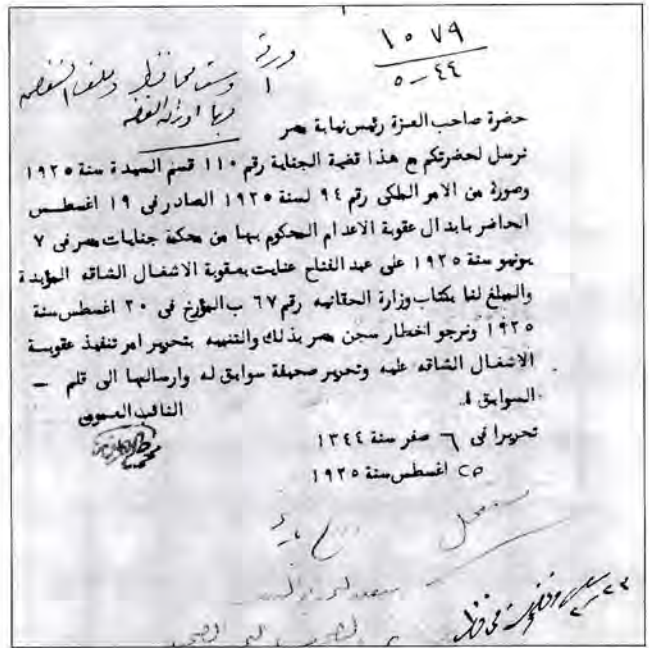 ١٠٧٩
٤٤-٥
ورقة
١
حضرة صاحب العزة رئيس نيابة مصر
نرسل لحضرتكم مع هذا قضية الجناية رقم ١١٠ قسم السيدة سنة ١٩٢٥
وصورة من الامر الملكى رقم ٩٤ لسنة ١٩٢٥ الصادر فى ١٩ اغسطس
الحاضر بابدال عقوبة الاعدام المحكوم بها من محكمة جنايات مصر فى ٧
يونيو سنة ١٩٢٥ على عبد الفتاح عنايت بعقوبة الاشغال الشاقه المؤبدة
والمبلغ لنا بكتاب وزارة الحقانيه رقم ٦٧ ب المؤرخ فى ٢٠ اغسطس سنة
١٩٢٥ ونرجو اخطار سجن مصر بذلك والتنبيه بتحرير امر تنفيذ عقوبة
الاشغال الشاقه عليه وتحرير صحيفة سوابق له وارسالها الى قلم –
السوابق
النائب العمومى
تحريرا فى ٦ صفر سنة ١٣٤٤
٢٥ اغسطس سنة ١٩٢٥